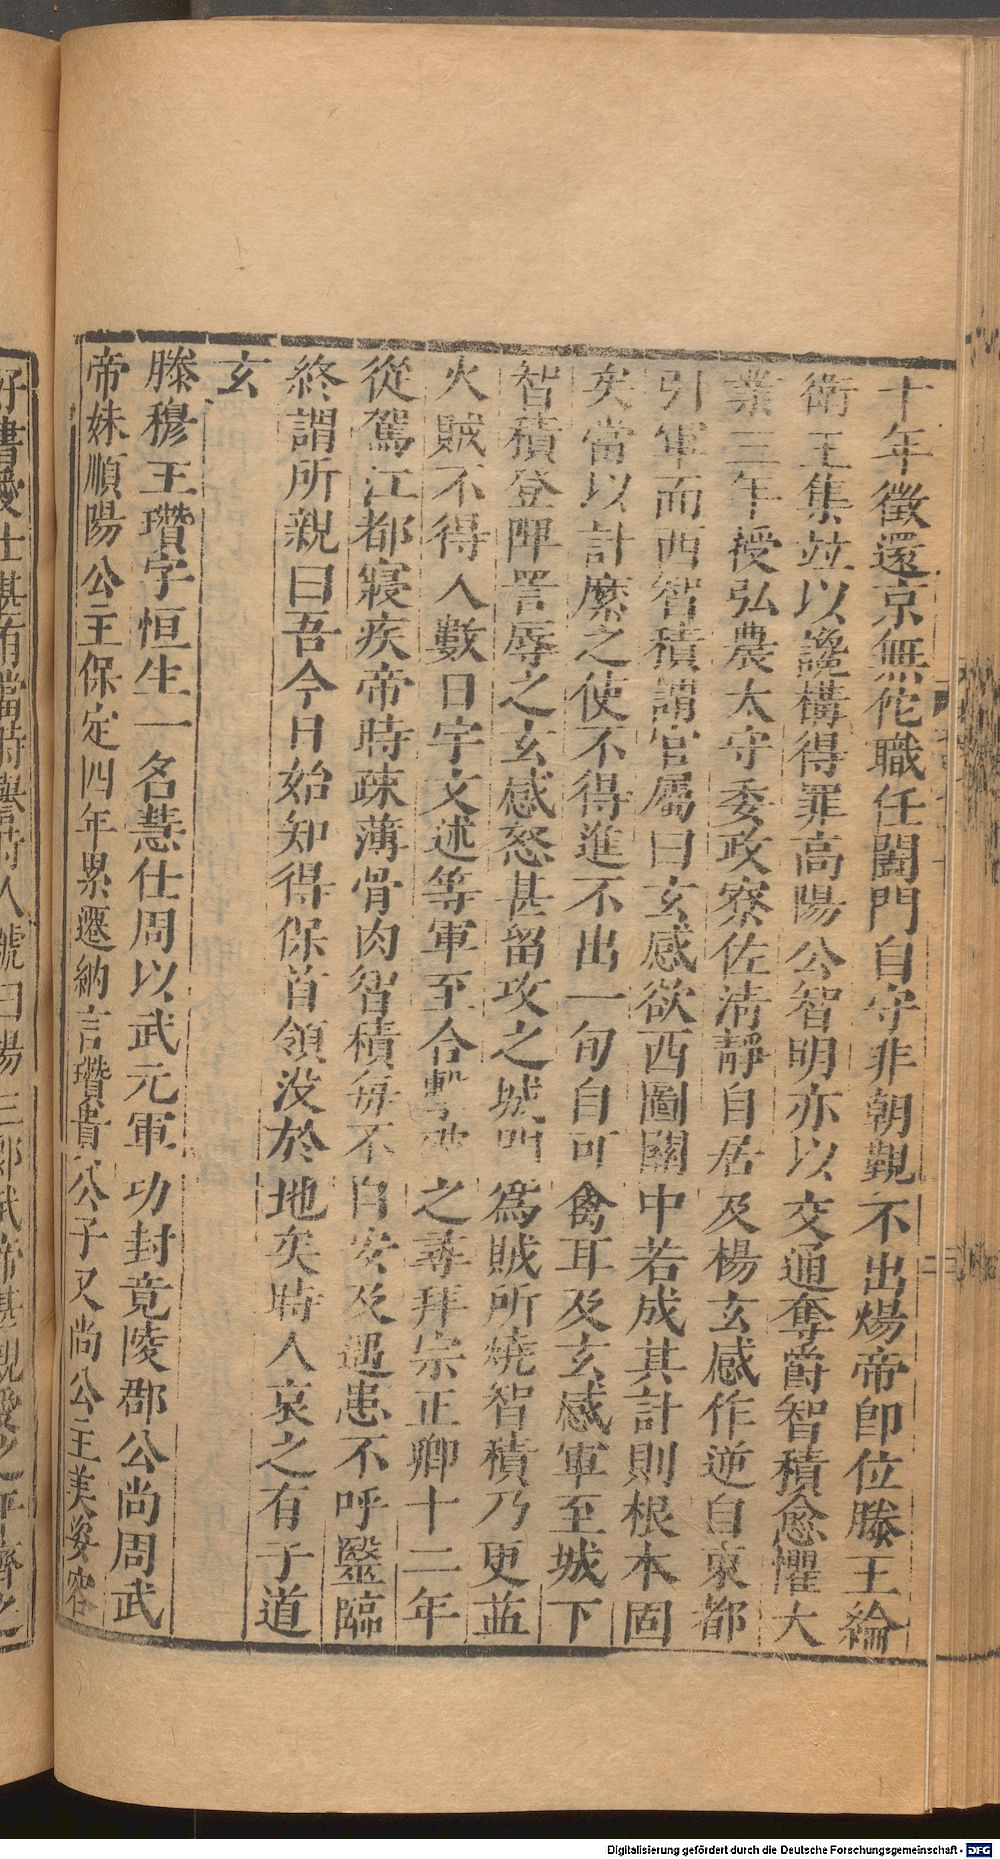 十年徵還京無佗職任闔門自守非朝覲不出煬帝即位滕王綸
衛王集並以讒構得罪高陽公智明亦以交通奪爵智積愈懼大
業三年授弘農太守委政寮佐淸靜自居及楊玄感作逆自東都
引軍而西智積謂官屬曰玄感欲西圖關中若成其計則根本固
矣當以計縻之使不得進不出一旬自可禽耳及玄感軍至城下
智積登陴詈辱之玄感怒甚留攻之城門爲賊所燒智積乃更益
火賊不得入數日宇文述等軍至合擊破之尋拜宗正卿十二年
從駕江都寢疾帝時疎薄骨肉智積每不自安及遇患不呼醫臨
終謂所親曰吾今日始知得保首領没於地矣時人哀之有子道
玄
滕穆王瓚字恒生一名慧仕周以武元軍功封竟陵郡公尚周武
帝妹順陽公主保定四年累遷納言瓚貴公子又尚公主美姿容
好書愛士甚有當時譽時人號曰楊三郎武帝甚親愛之平齊之
Digitalisierung gefördert durch die Deutsche Forschungsgemeinschaft - DFG